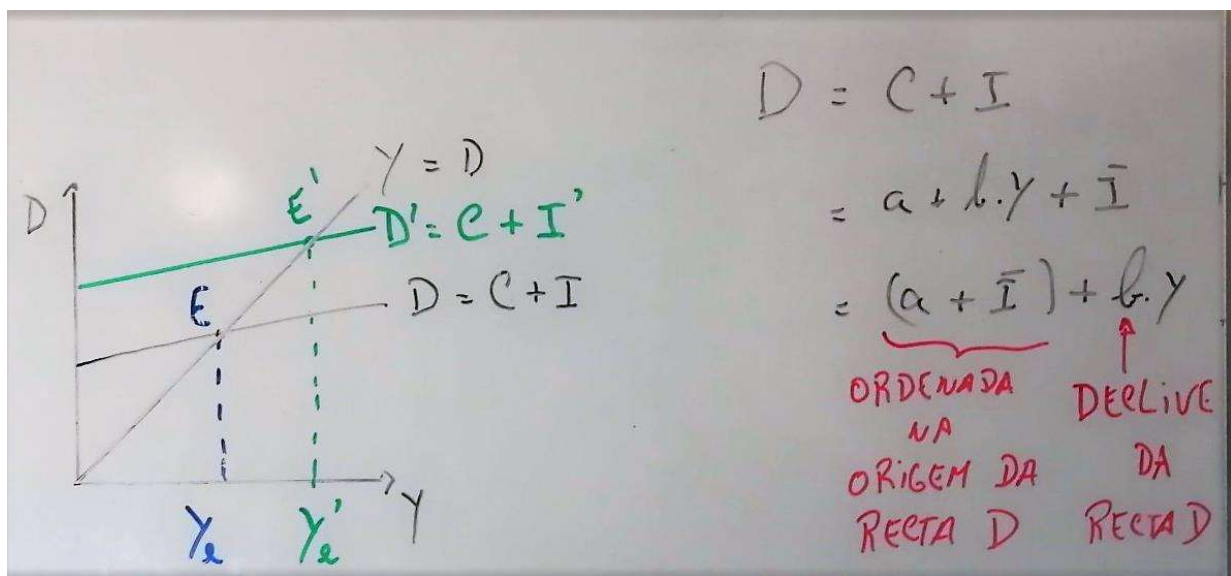 D
Y = D
E'
D' = C + I'
E
D = C + I
Y
Ye
Ye'
D = C + I
= a + b.y + Ī
= (a + Ī) + b.y
ORDENADA
NA
ORIGEM DA
RECTA D
DECLIVE
DA
RECTA D